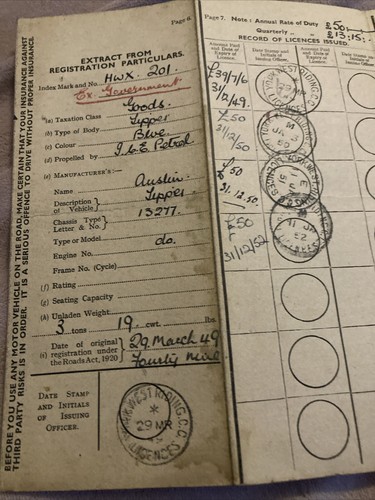 BEFORE YOU USE ANY MOTOR VEHICLE ON THE ROAD, MAKE CERTAIN THAT YOUR INSURANCE AGAINST
THIRD PARTY RISKS IS IN ORDER. IT IS A SERIOUS OFFENCE TO DRIVE WITHOUT PROPER INSURANCE.
Page 6.
EXTRACT FROM
REGISTRATION PARTICULARS.
Index Mark and No. HWX. 201.
Ex. Government
(a) Taxation Class Goods.
(b) Type of Body Tipper
(c) Colour Blue.
(d) Propelled by I.C.E Petrol
(e) MANUFACTURER'S:—
Name Austin.
Description of Vehicle Tipper
Chassis Type Letter & No. 13277.
Type or Model do.
Engine No.
Frame No. (Cycle)
(f) Rating
(g) Seating Capacity
(h) Unladen Weight:
3 tons 19 cwt. lbs.
(i) Date of original registration under the Roads Act, 1920 29 March 49
Fourty Nine
DATE STAMP
AND INITIALS
OF ISSUING
OFFICER.
YORK WEST RIDING C.C.
29 MR
LICENCES
Page 7. Note: Annual Rate of Duty £50
Quarterly £13:15:-
RECORD OF LICENCES ISSUED.
Amount Paid and Date of Expiry of Licence.
Date Stamp and Initials of Issuing Officer.
Amount Paid and Date of Expiry of Licence.
Date Stamp and Initials of Issuing Officer.
£39/7/6
31/12/49.
£50
31/12/50
£50
31.12.50.
£50
31/12/52